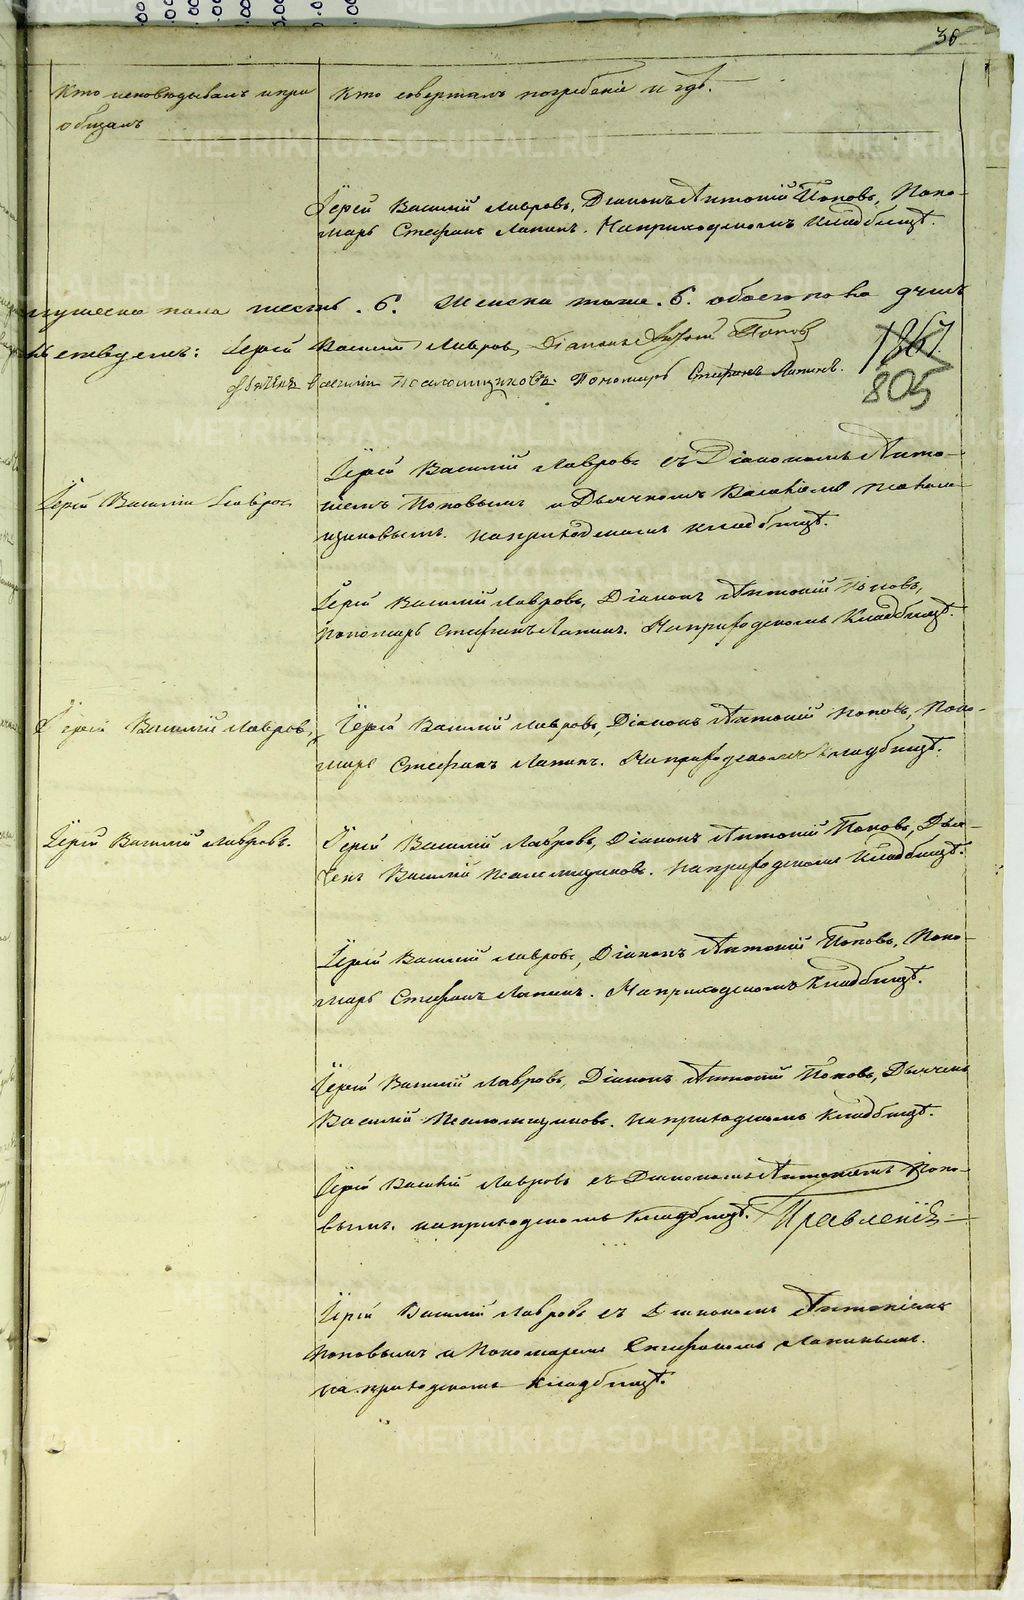 36
Кто исповѣдывалъ и прі
общалъ
Кто совершалъ погребеніе и гдѣ.
Іерей Василій Лавровъ, Діаконъ Антоній Поповъ, Поно-
марь Стефанъ Лапинъ. На приходскомъ кладбищѣ.
мужеска пола шесть .6. женска тоже .6. обоего пола
Іерей Василій Лавров, Діаконъ Антоній Попов
Василій Псаломщиковъ. Пономарь Стефанъ Лапинъ.
1867.
805
Іерей Василій Лавров
Іерей Василій Лавровъ съ Діакономъ Анто-
ніемъ Поповымъ и Дьячкомъ Василіемъ Псалом-
щиковымъ. на приходскомъ кладбищѣ.
Іерей Василій Лавровъ, Діаконъ Антоній Поповъ,
Пономарь Стефанъ Лапинъ. На приходскомъ кладбищѣ.
Іерей Василій Лавров,
Іерей Василій Лавровъ, Діаконъ Антоній Поповъ, Поно-
марь Стефанъ Лапинъ. На приходскомъ кладбищѣ.
Іерей Василій Лавровъ.
Іерей Василій Лавровъ, Діаконъ Антоній Поповъ, Дья-
чекъ Василій Псаломщиковъ. На приходскомъ кладбищѣ.
Іерей Василій Лавровъ, Діаконъ Антоній Поповъ, Поно-
марь Стефанъ Лапинъ. На приходскомъ кладбищѣ.
Іерей Василій Лавровъ, Діаконъ Антоній Поповъ, Дьячекъ
Василій Псаломщиковъ. На приходскомъ кладбищѣ.
Іерей Василій Лавровъ съ Діакономъ Антоніемъ Попо-
вымъ. на приходскомъ кладбищѣ.
Іерей Василій Лавровъ съ Діакономъ Антоніемъ
Поповымъ и Пономаремъ Стефаномъ Лапинымъ.
на приходскомъ кладбищѣ.
METRIKI.GASO-URAL.RU